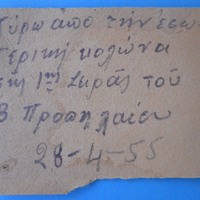 Γύρω από την έσω-
τερική κολώνα
της 1ης σειράς του
Β Προπυλαίου
28-4-55